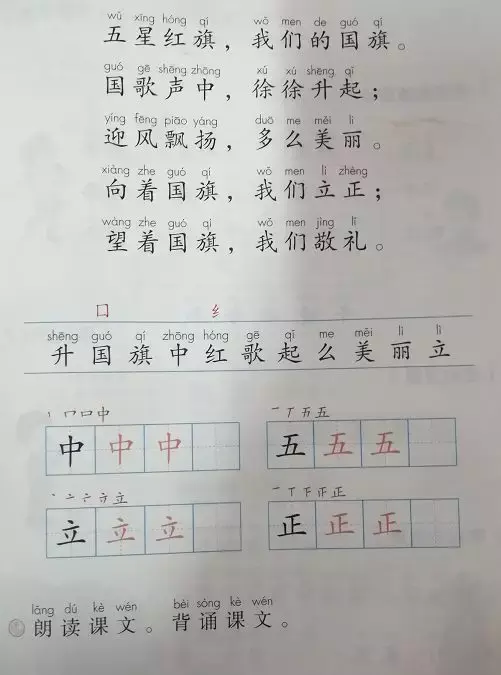 wǔ xīng hóng qí wǒ men de guó qí
五星红旗，我们的国旗。
guó gē shēng zhōng xú xú shēng qǐ
国歌声中，徐徐升起；
yíng fēng piāo yáng duō me měi lì
迎风飘扬，多么美丽。
xiàng zhe guó qí wǒ men lì zhèng
向着国旗，我们立正；
wàng zhe guó qí wǒ men jìng lǐ
望着国旗，我们敬礼。
囗 纟
shēng guó qí zhōng hóng gē qǐ me měi lì lì
升国旗中红歌起么美丽立
中 中 中 五 五 五
立 立 立 正 正 正
lǎng dú kè wén bèi sòng kè wén
朗读课文。背诵课文。